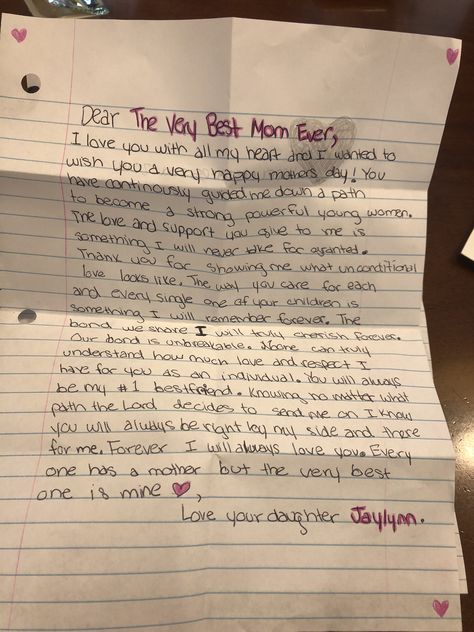 Dear The Very Best Mom Ever,
I love you with all my heart and I wanted to
wish you a very happy mothers day! You
have continously guided me down a path
to become a strong powerful young women.
The love and support you give to me is
something I will never take for granted.
Thank you for showing me what unconditional
love looks like. The way you care for each
and every single one of your children is
something I will remember forever. The
bond we share I will truly cherish forever.
Our bond is unbreakable. None can truly
understand how much love and respect I
have for you as an individual. You will always
be my #1 bestfriend. Knowing no matter what
path the Lord decides to send me on I know
you will always be right by my side and there
for me. Forever I will always love you. Every
one has a mother but the very best
one is mine ♥,
Love your daughter Jaylynn.